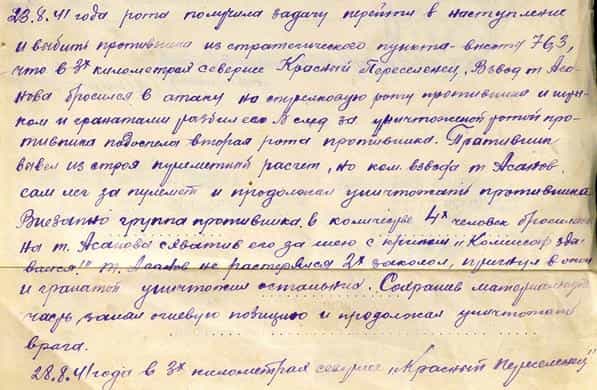 23.8.41 года рота получила задачу перейти в наступление
и выбить противника из стратегического пункта - высоты 76,3,
что в 3х километрах севернее Красный Переселенец. Взвод т. Аса-
нова бросился в атаку на стрелковую роту противника и шты-
ком и гранатами разбил его. В след за уничтоженой ротой про-
тивника подоспела вторая рота противника. Противник
вывел из строя пулеметный расчет, но ком. взвода т. Асанов.
сам лег за пулемет и продолжал уничтожать противника
Внезапно группа противника в количестве 4х человек бросилась
на т. Асанова схватив его за шею с криком „Комиссар зда-
вайся!" т. Асанов не растерялся 2х заколол, прыгнул в окоп
и гранатой уничтожил остальных. Сохранив материальную
часть, занял огневую позицию и продолжал уничтожать
врага.
28.8.41 года в 3х километрах севернее „Красный Переселенец"